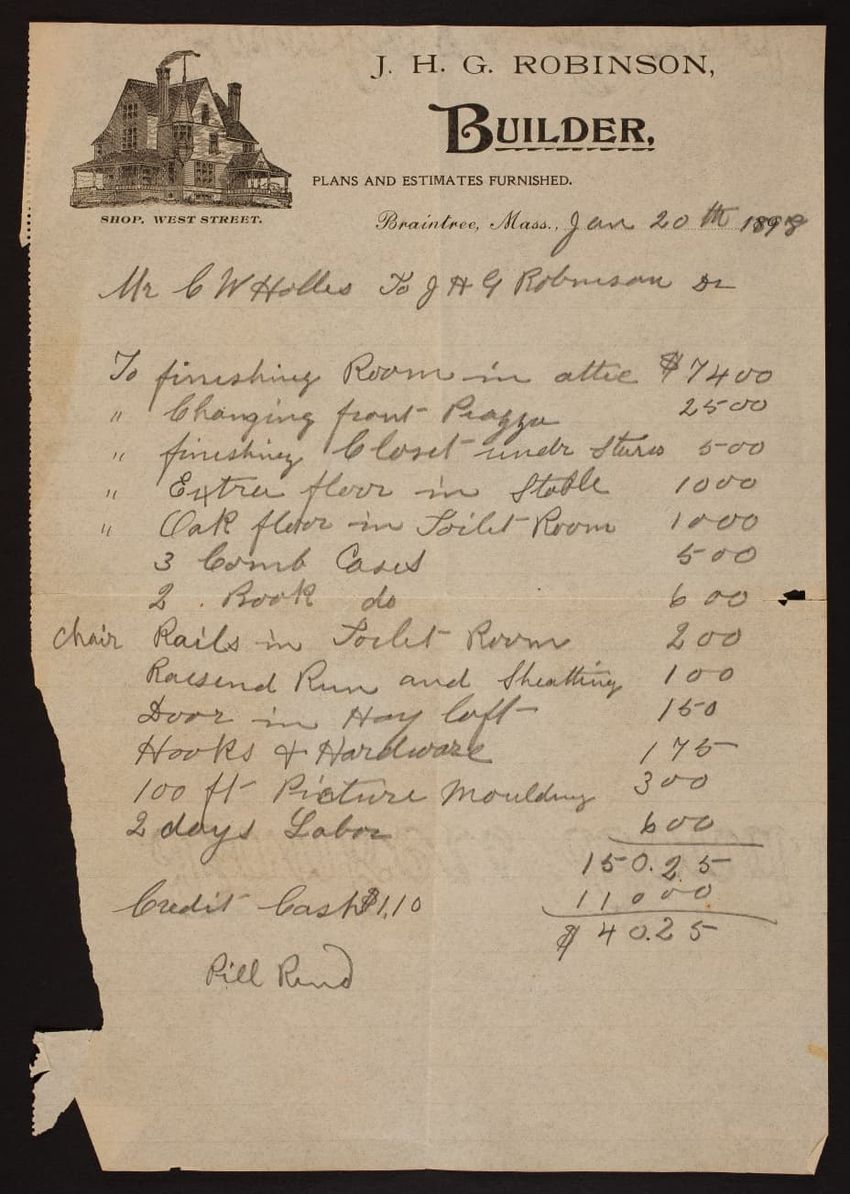 J. H. G. ROBINSON,
BUILDER,
PLANS AND ESTIMATES FURNISHED.
SHOP, WEST STREET.
Braintree, Mass., Jan 20th 1898
Mr C W Holles To J H G Robinson Dr
To finishing Room in attic $7400
" Changing front Piazza 2500
" finishing Closet undr Stares 500
" Extree floor in Stable 1000
" Oak floor in Toilet Room 1000
3 Comb Cases 500
2 Book do 600
chair Rails in Toilet Room 200
Run and Sheatting 100
Door in Hay loft 150
Hooks & Hardware 175
100 ft Picture Moulding 300
2 days Labor 600
150.25
Credit Cash $1,10 11000
$40.25